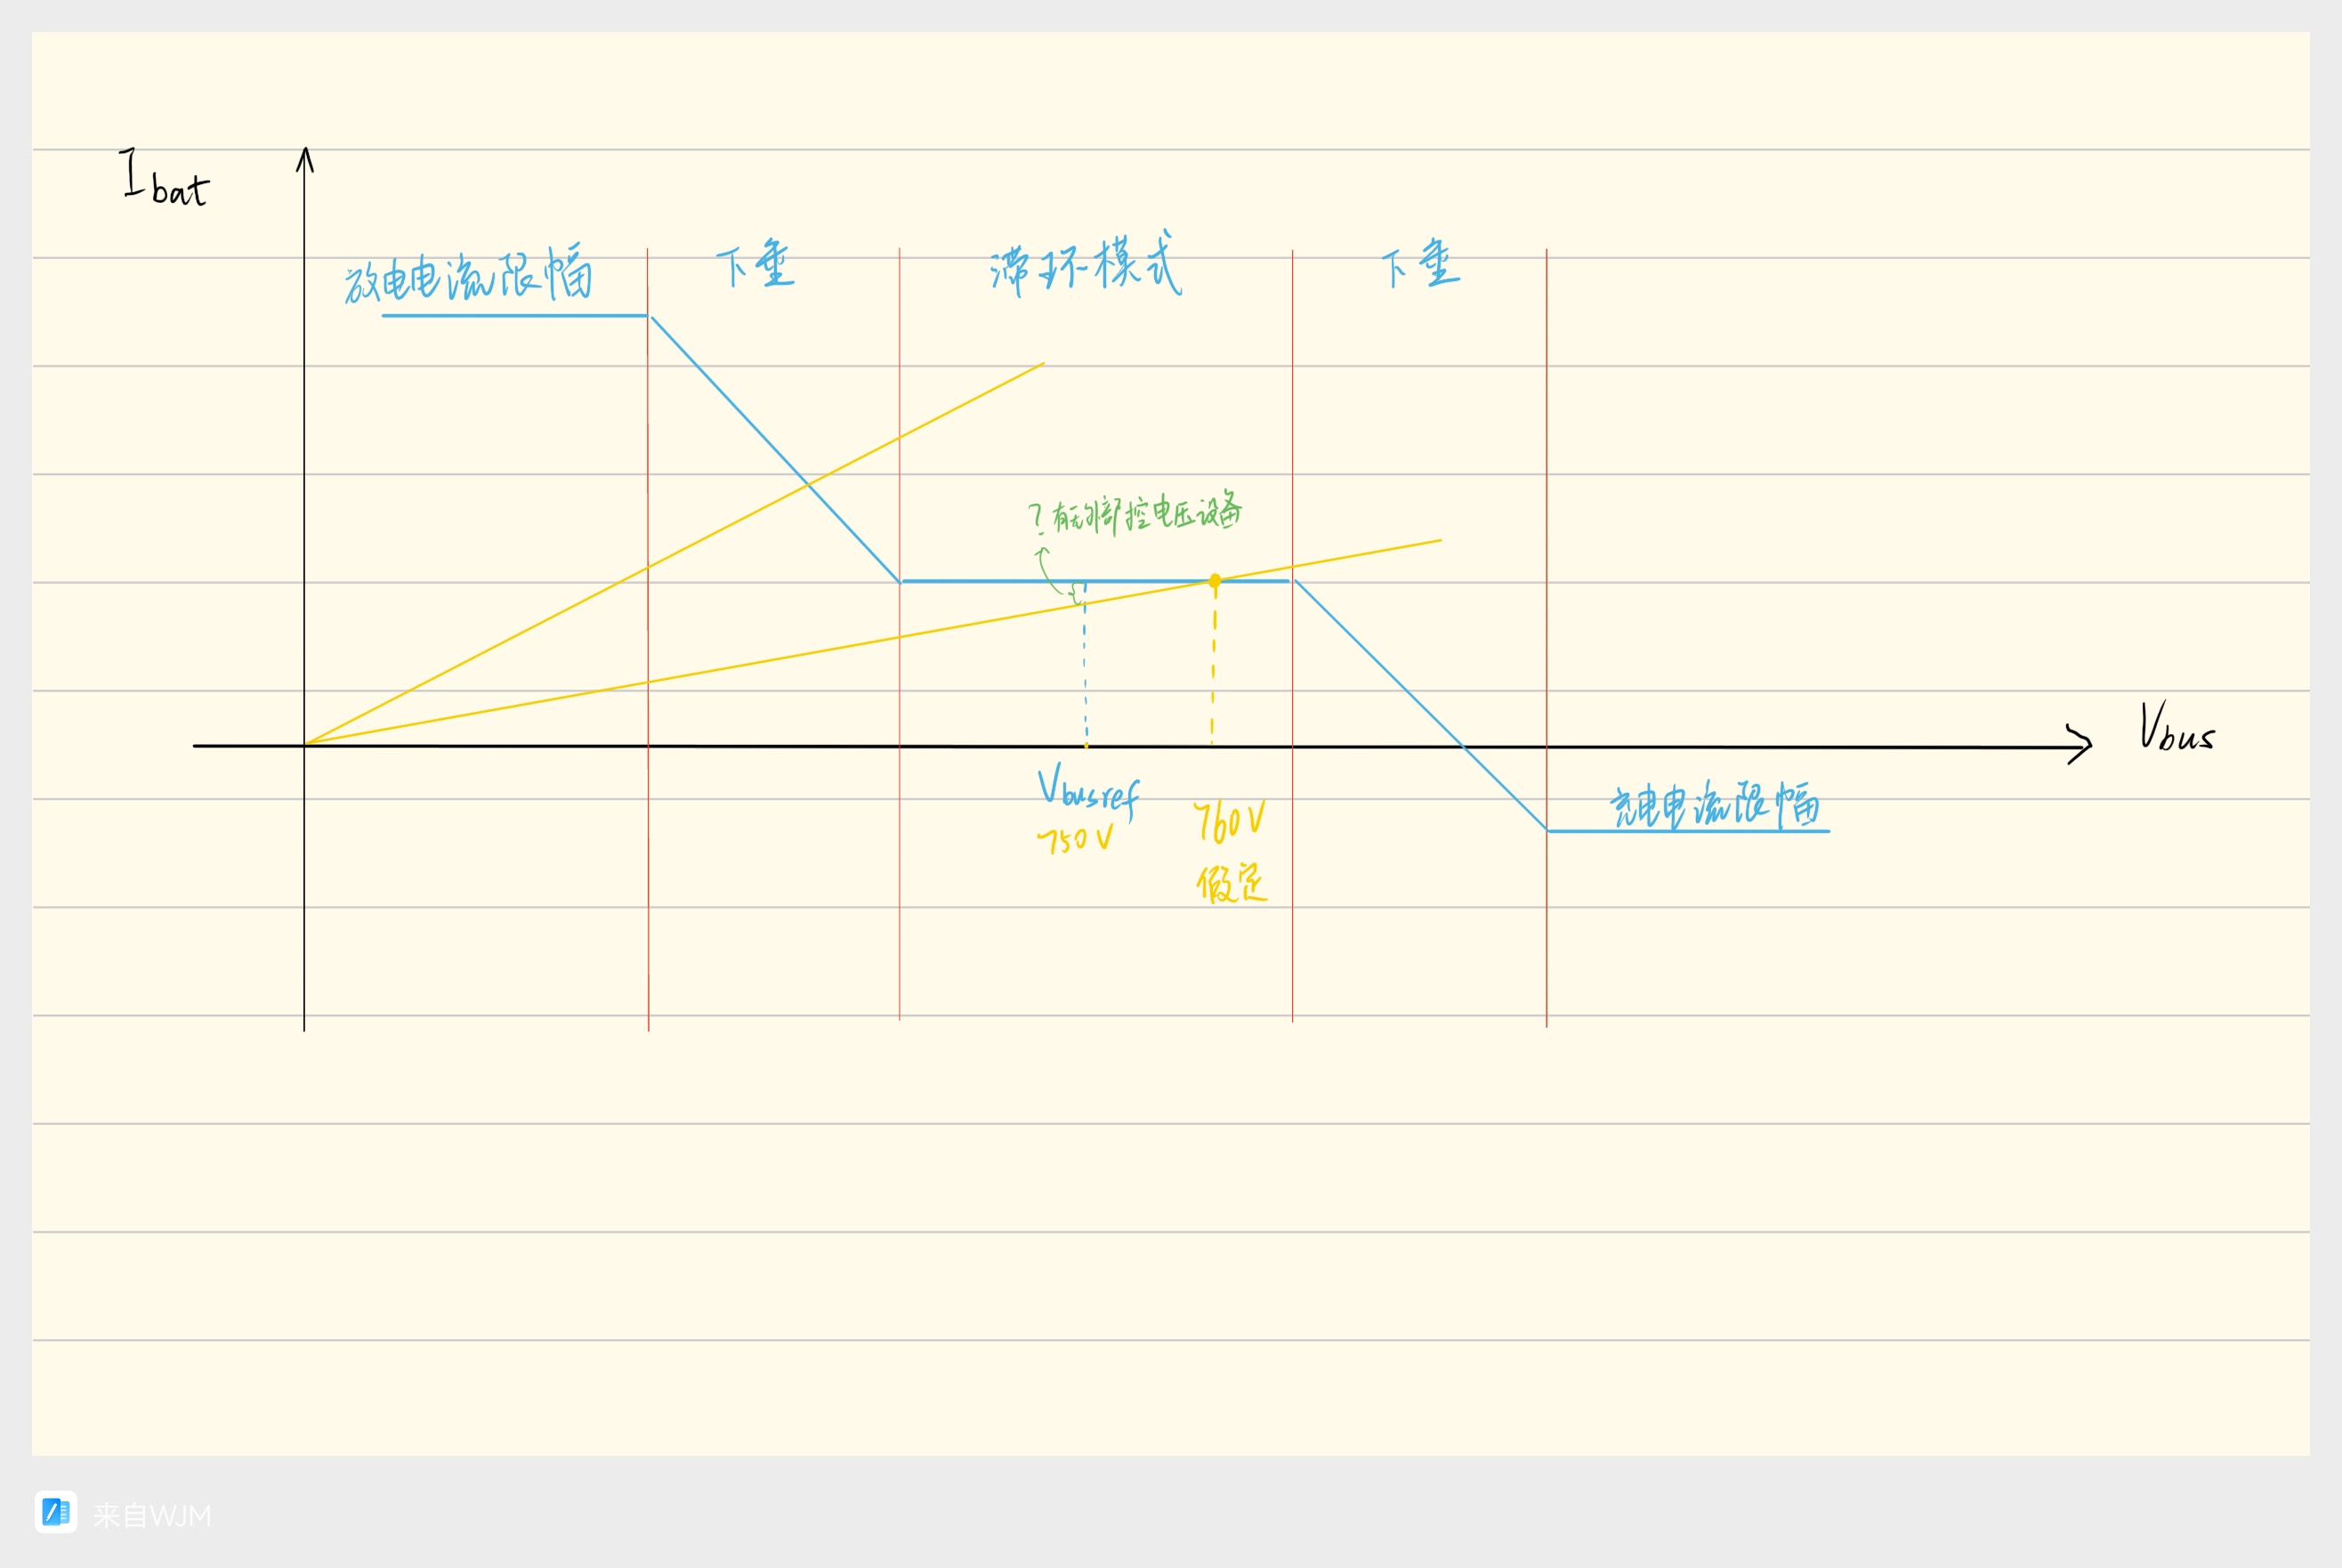 Ibat
放电电流限幅
下垂
滞环模式
下垂
?有无精控电压设备
Vbus
Vbusref
750V
760V
假定
充电电流限幅
来自WJM